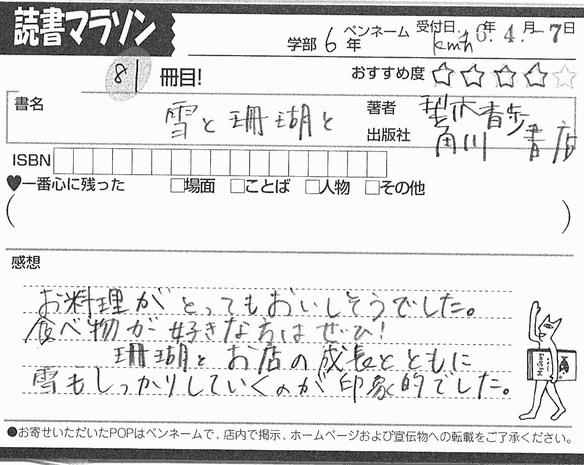 読書マラソン
学部 6年 ペンネーム kmh 受付日 6年 4月 7日
81冊目!
おすすめ度 ☆☆☆☆☆
書名 雪と珊瑚と
著者 梨木香歩
出版社 角川書店
ISBN
♥一番心に残った □場面 □ことば □人物 □その他
( )
感想
お料理がとってもおいしそうでした。
食べ物が好きな方はぜひ!
珊瑚とお店の成長とともに
雪もしっかりしていくのが印象的でした。
●お寄せいただいたPOPはペンネームで、店内で掲示、ホームページおよび宣伝物への転載をご了承ください。